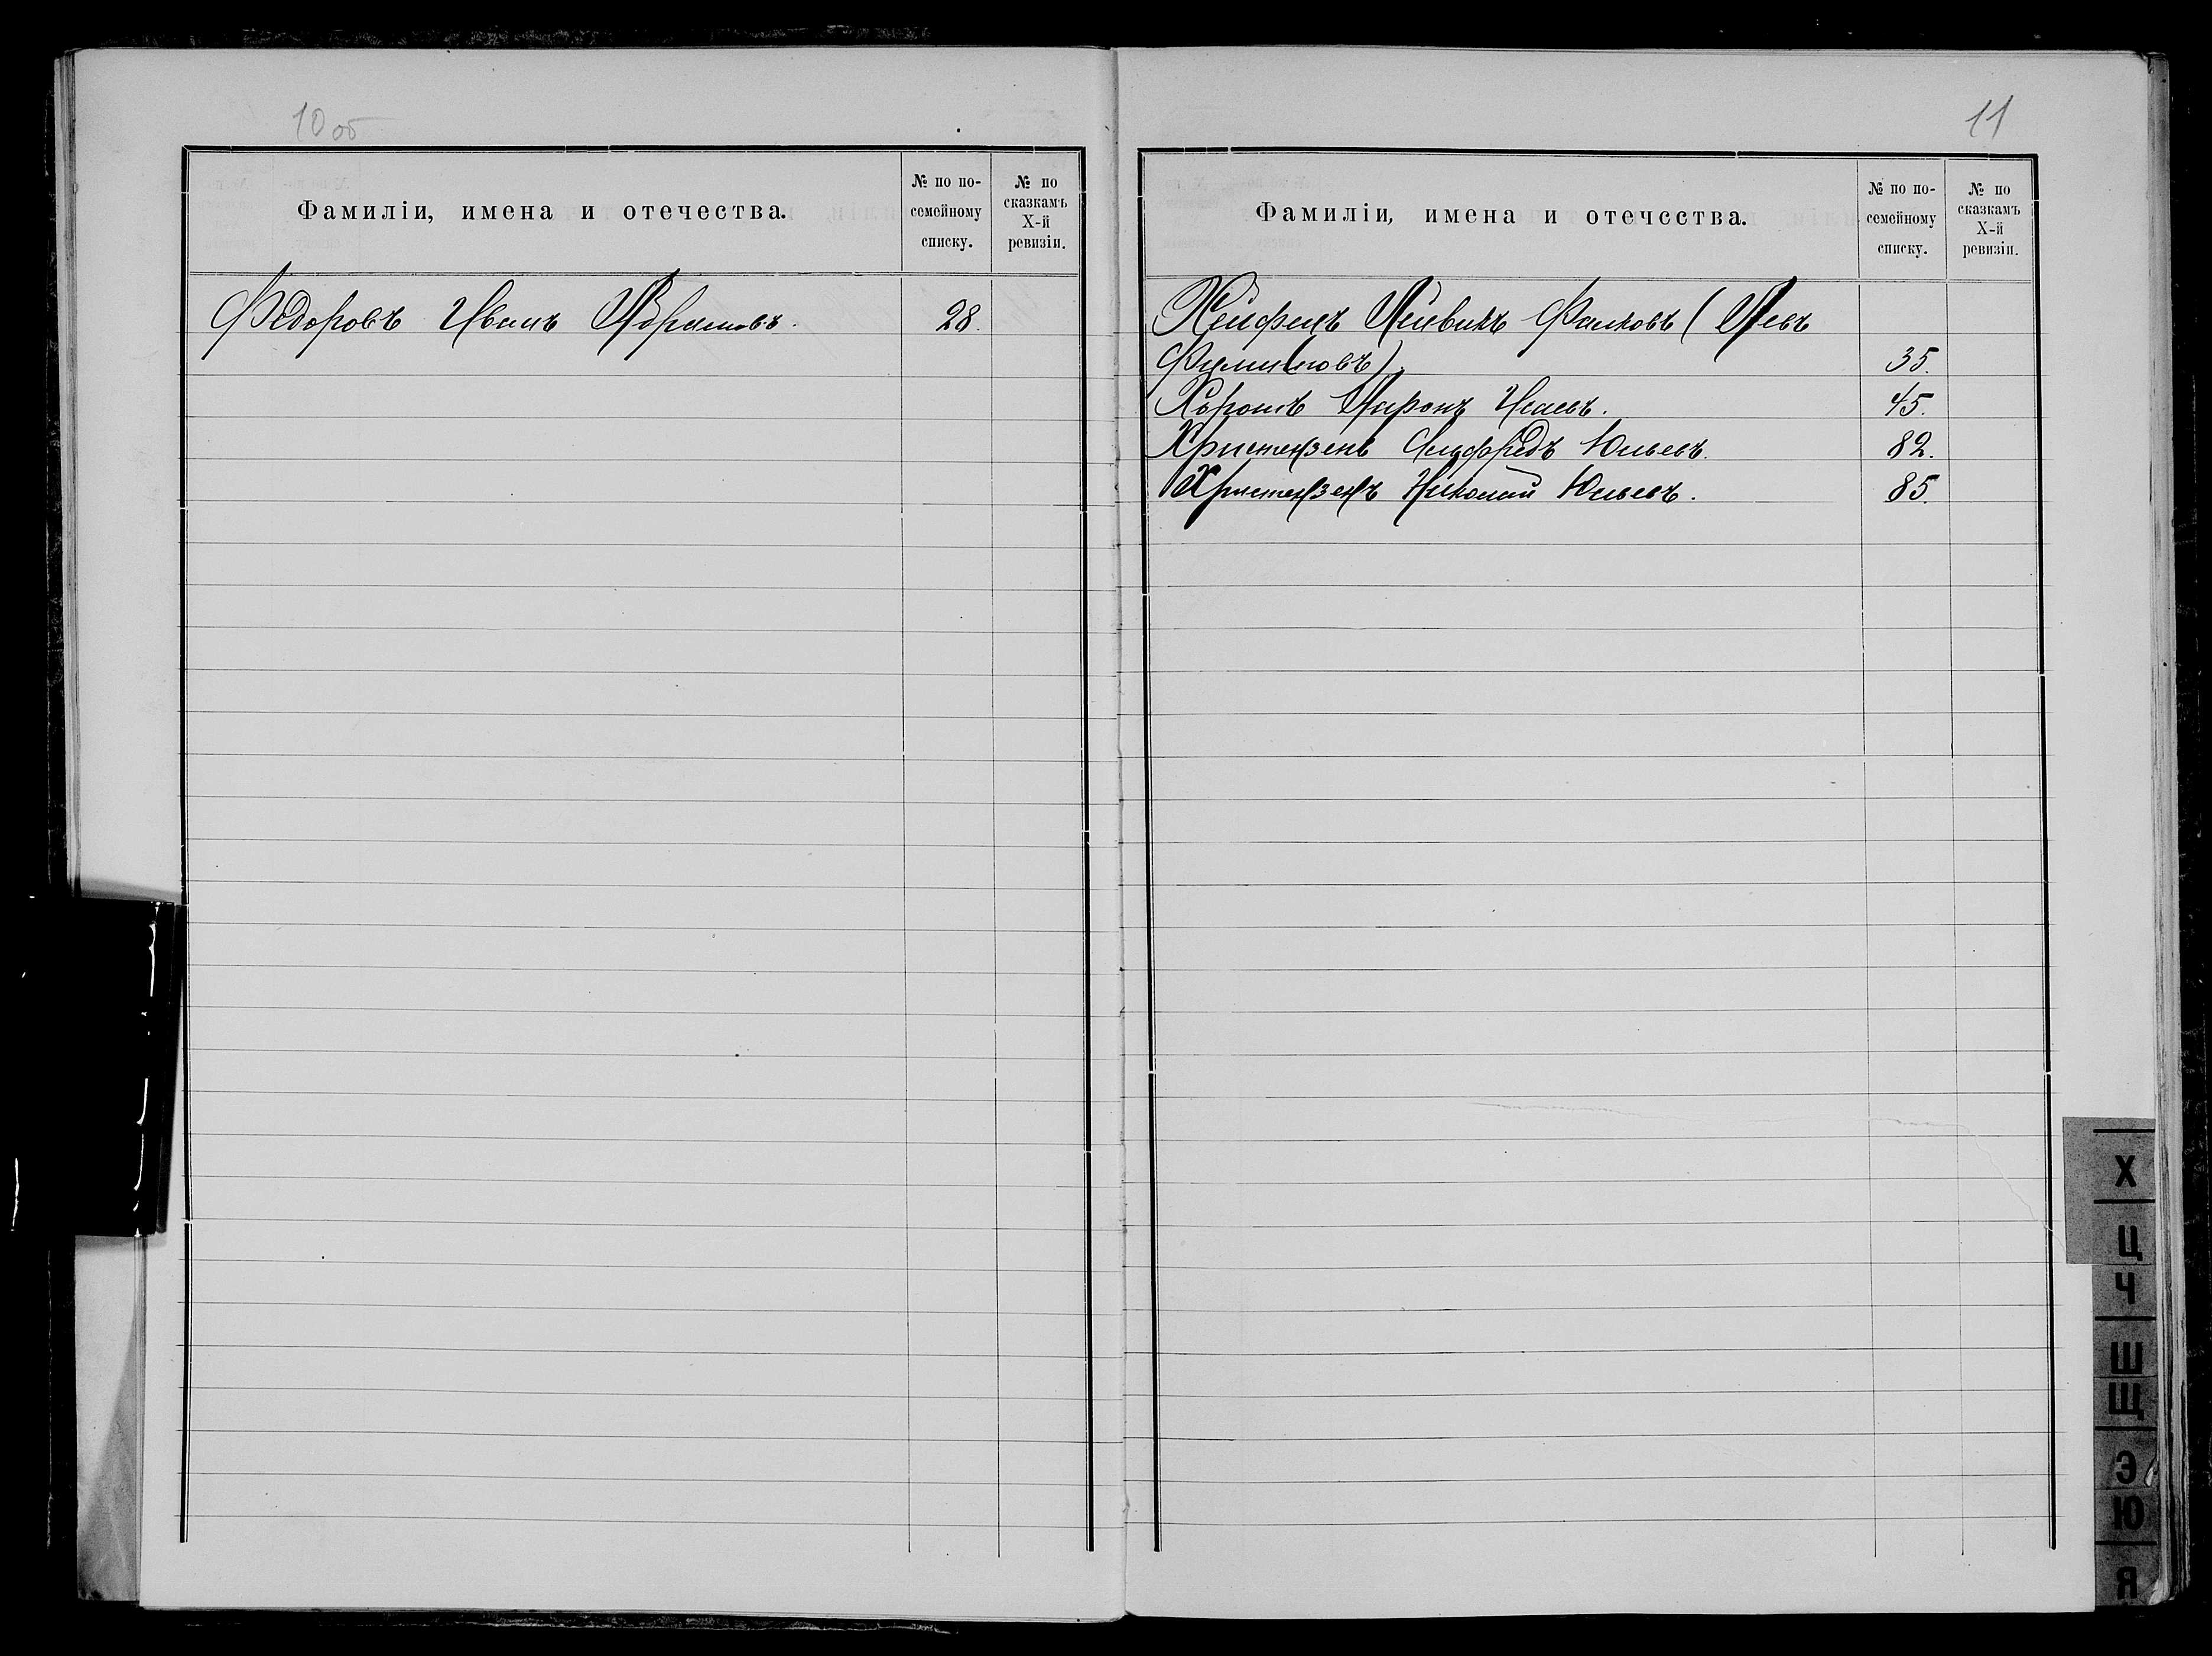 10 об
Фамиліи, имена и отечества.
№ по по-
семейному
списку.
№ по
сказкамъ
X-й
ревизіи.
Федоровъ Иванъ Абрамовъ. 28.
11
Фамиліи, имена и отечества.
№ по по-
семейному
списку.
№ по
сказкамъ
X-й
ревизіи.
Хейфецъ Лейвикъ Фалковъ (Левъ
35.
Аронъ Исаевъ. 45.
Христензенъ Юльевъ. 82.
Христензенъ Николай Юльевъ. 85.
Х
Ц
Ч
Ш
Щ
Э
Ю
Я